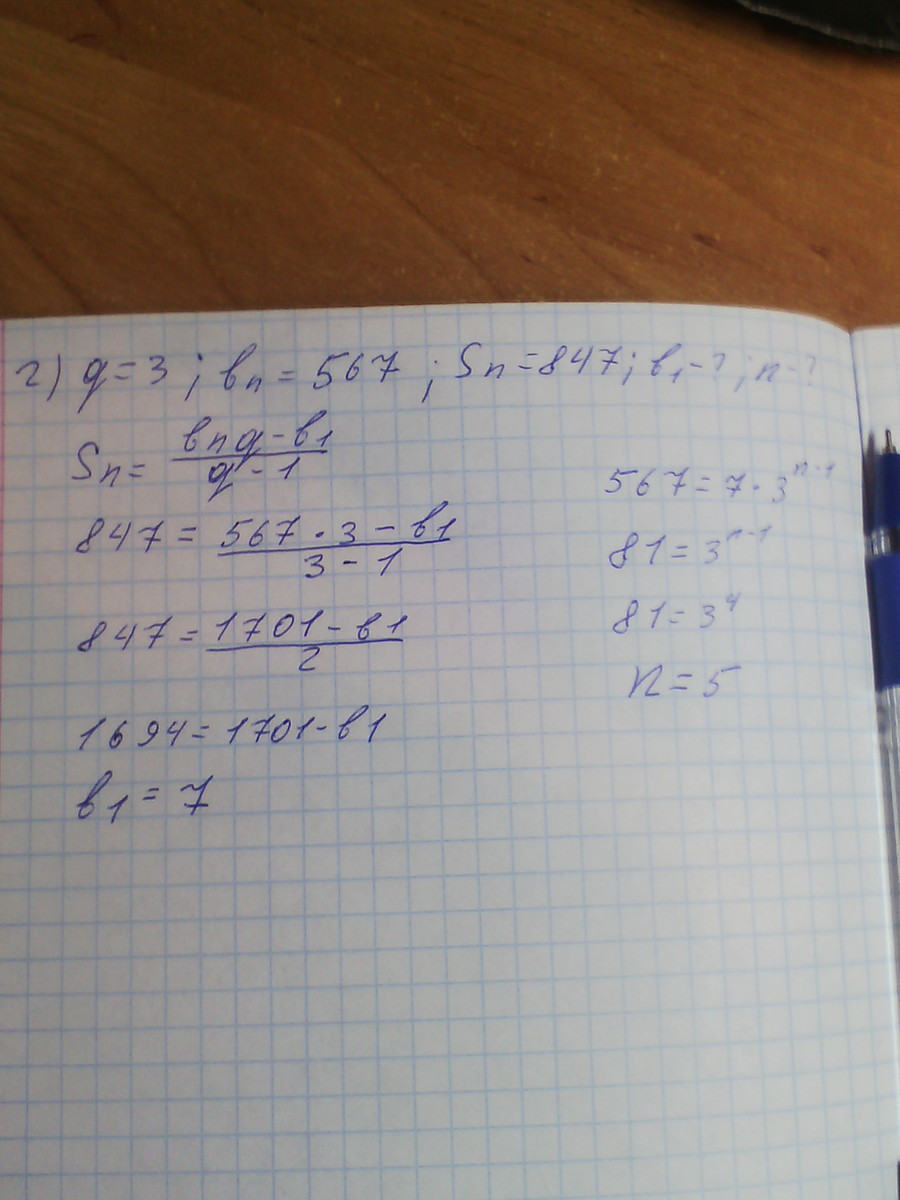 г) q=3 ; bn = 567 ; Sn=847; b1-? ; n-?
Sn= (bnq-b1)/(q-1)
847 = (567·3-b1)/(3-1)
847 = (1701-b1)/2
1694=1701-b1
b1 = 7
567=7·3^(n-1)
81=3^(n-1)
81=3^4
n=5